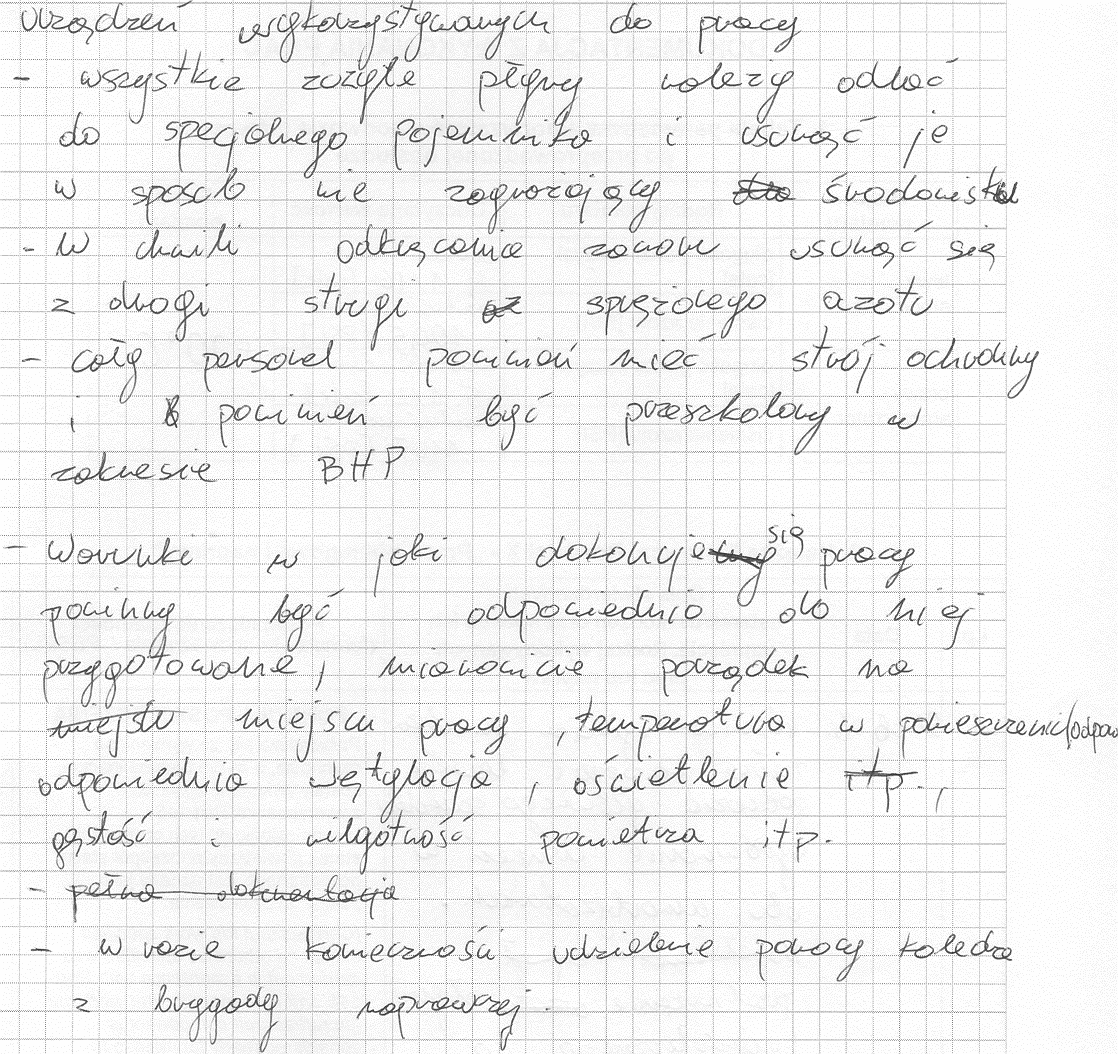 urządzeń wykorzystywanych do pracy
- wszystkie zużyte płyny należy odlać
do specjalnego pojemnika i usunąć je
w sposób nie zagrażający środowisku
- W chwili odkręcania zaworu usunąć się
z drogi strugi sprężolego azotu
- cały personel powinień mieć strój ochronny
i powinień być przeszkolony w
zakresie BHP
- Warunki w jaki dokonuje się pracy
powinny być odpowiednio do niej
przygotowane, mianowicie porządek na
miejscu pracy, temperatura w pomieszczeniu
odpowiednia wętylacja, oświetlenie itp.,
gęstość i wilgotność powietrza itp.
- pełna dokumentacja
- w razie konieczności udzielenie pomocy koledze
z brygady naprawczej.